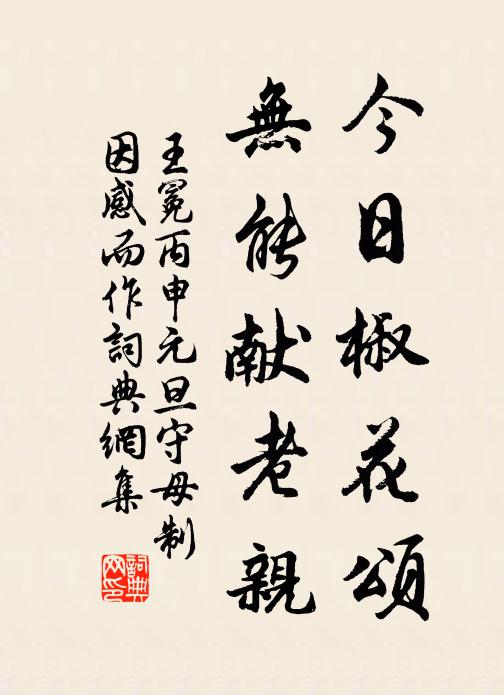 今日椒花頌
無能献老親
王冕丙申元旦守母制
因感而作詞典網集
詞典
网印